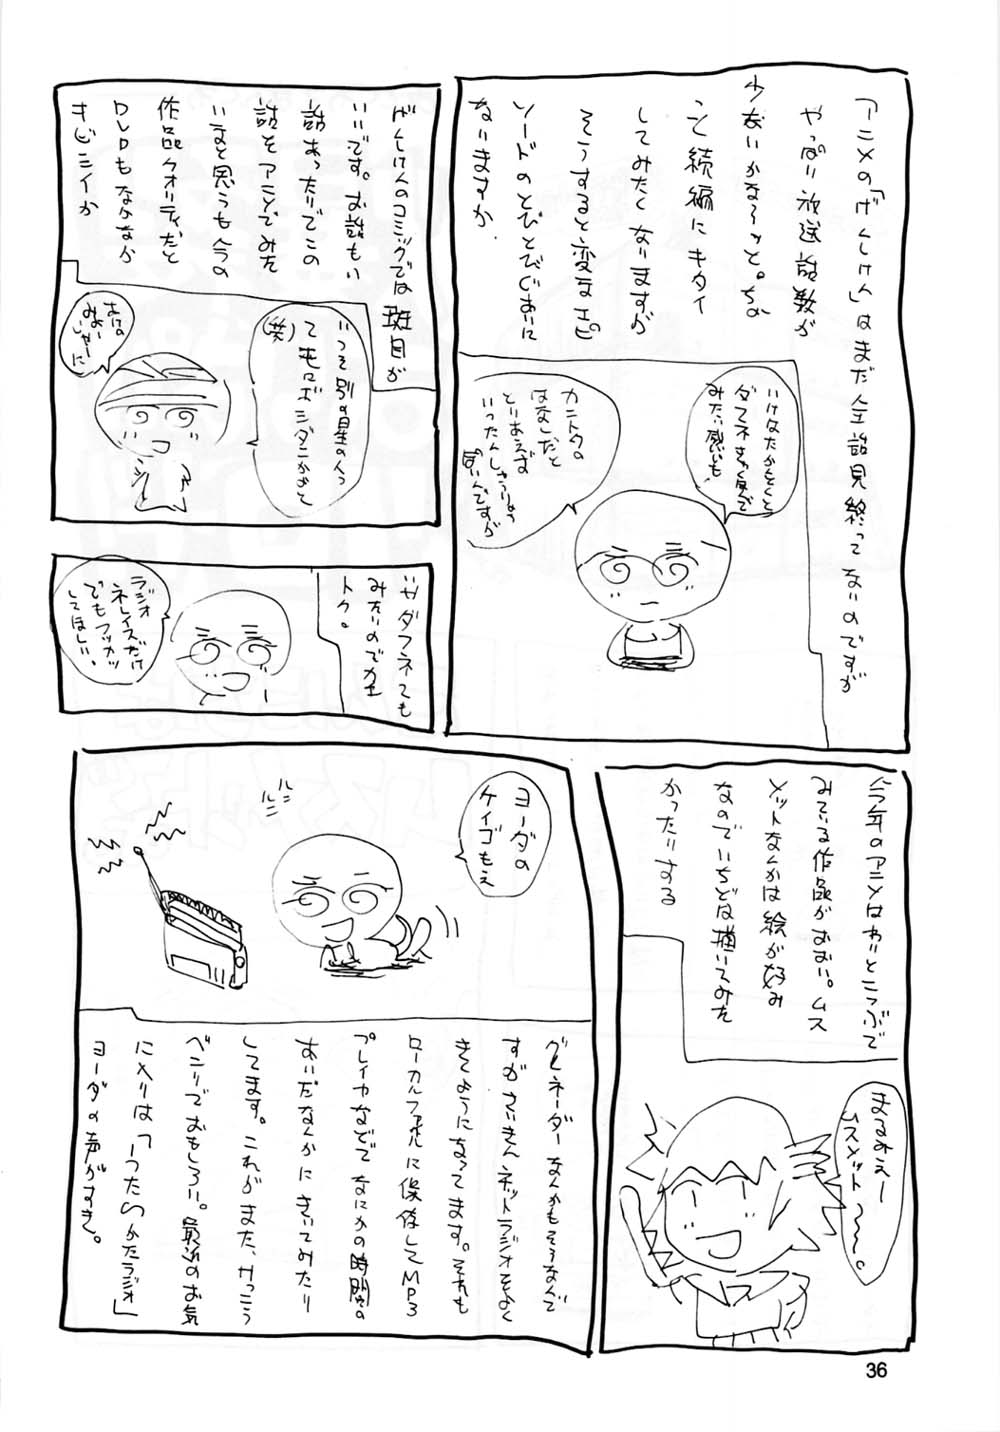 アニメの「げんしけん」はまだ全話見終ってないのですが
やっぱり放送話数が
少ないかな〜ッと。ちょ
っと続編にキタイ
してみたくなりますが
そうすると変なエピ
ソードのとびとびぐあいに
ないますか
みたい感いも
カントクの
はなしだと
とりあえず
いったんしゅうりょう
ぽいんですが
げんしけんのコミックでは斑目が
いいです。お話もいい
話あったりでこの
話をアニメでみた
いまと思うも今の
作品クオリティだと
DVDもなかなか
キビシイか
いっそ別の星の人っ
て
(笑)
いやダフネても
みたいのでカエ
トク。
ラジオ
ネレイズだけ
でもフッカツ
してほしい。
今年のアニメはわりとこつぶで
みている作品がおおい。ムス
メットなんかは絵が好み
なのでいちどは描いてみた
かったりする
まるみえー
Sスメット〜〜。
ヨーダの
ケイゴもえ
グレネーダーなんかもそうなんで
すがさいきんネットラジオをよく
きくようになってます。それも
ローカルファイルに保存してMP3
プレイヤなどでなにかの時間の
あいだなんかにきいてみたり
してます。これがまた、けっこう
ベンリでおもしろい。最近のお気
に入りは「うたわらかたラジオ」
ヨーダの声がすき。
36